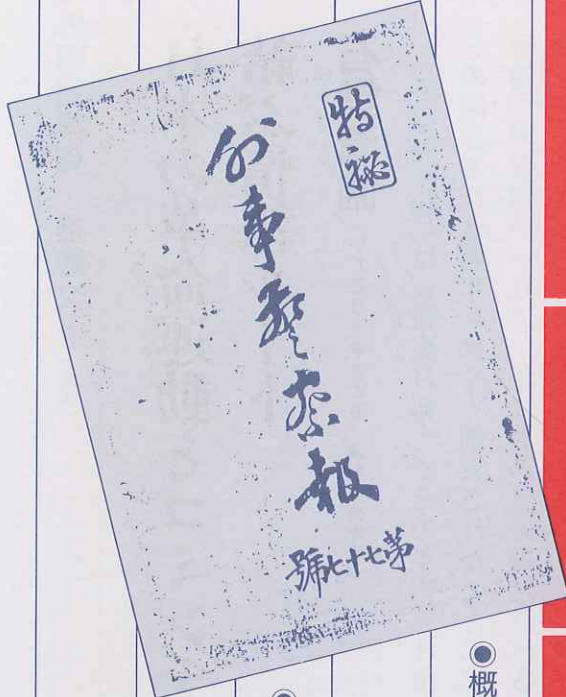 特秘
外事警察報
第七十七號
◉概